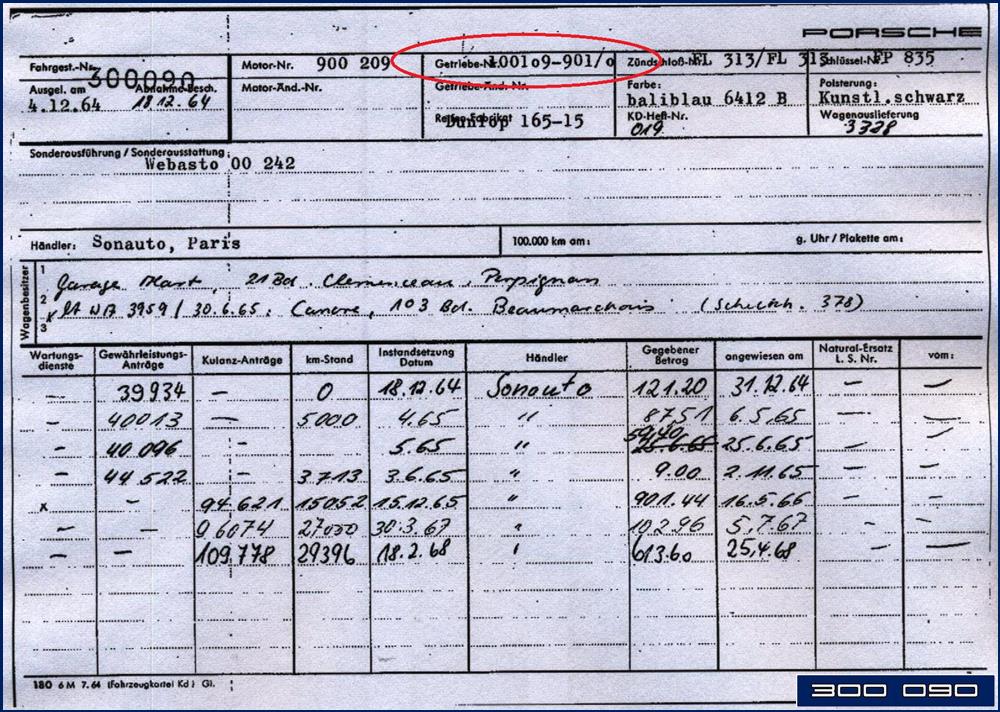 PORSCHE
Fahrgest.-Nr. 300090 Motor-Nr. 900 209 Getriebe-Nr. 100109-901/0 Zündschloß-Nr. FL 313/FL 313 Schlüssel-Nr. FP 835
Ausgel. am 4.12.64 Abnahme-Besch. 18 12. 64 Motor-Änd.-Nr. Getriebe-Änd.-Nr. Farbe: baliblau 6412 B Polsterung: Kunstl.schwarz
Reifen-Fabrikat Dunlop 165-15 KD-Heft-Nr. 019 Wagenauslieferung 3328
Sonderausführung / Sonderausstattung: Webasto 00 242
Händler: Sonauto, Paris 100.000 km am: g. Uhr / Plakette am:
Wagenbesitzer
1 Garage Mart, 21 Bd. Clemenceau, Perpignan
2 lt WA 3959 / 30.6.65: Canore, 103 Bd. Beaumarchais (Schultch. 378)
3
Wartungsdienste Gewährleistungs-Anträge Kulanz-Anträge km-Stand Instandsetzung Datum Händler Gegebener Betrag angewiesen am Natural-Ersatz L. S. Nr. vom:
— 39934 — 0 18.12.64 Sonauto 121.20 31.12.64 — —
— 40013 — 5000 4.65 " 87.51 6.5.65 — —
— 40096 - 5.65 " 59,40 25.6.65 25.6.65 — —
— 44522 - 3713 3.6.65 " 9.00 2.11.65 — —
x - 94621 15052 15.12.65 " 901.44 16.5.66 — —
— — 96074 27000 30.3.67 " 102.96 5.7.67 - —
— — 109.778 29396 18.2.68 " 613.60 25.4.68 — —
180 6 M 7.64 (Fahrzeugkartei Kd) Gl.
300 090